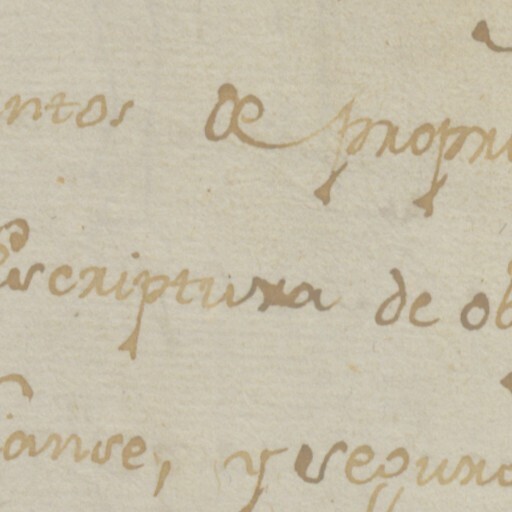 ntos de propri
Escriptura de ob
ianse, y segura